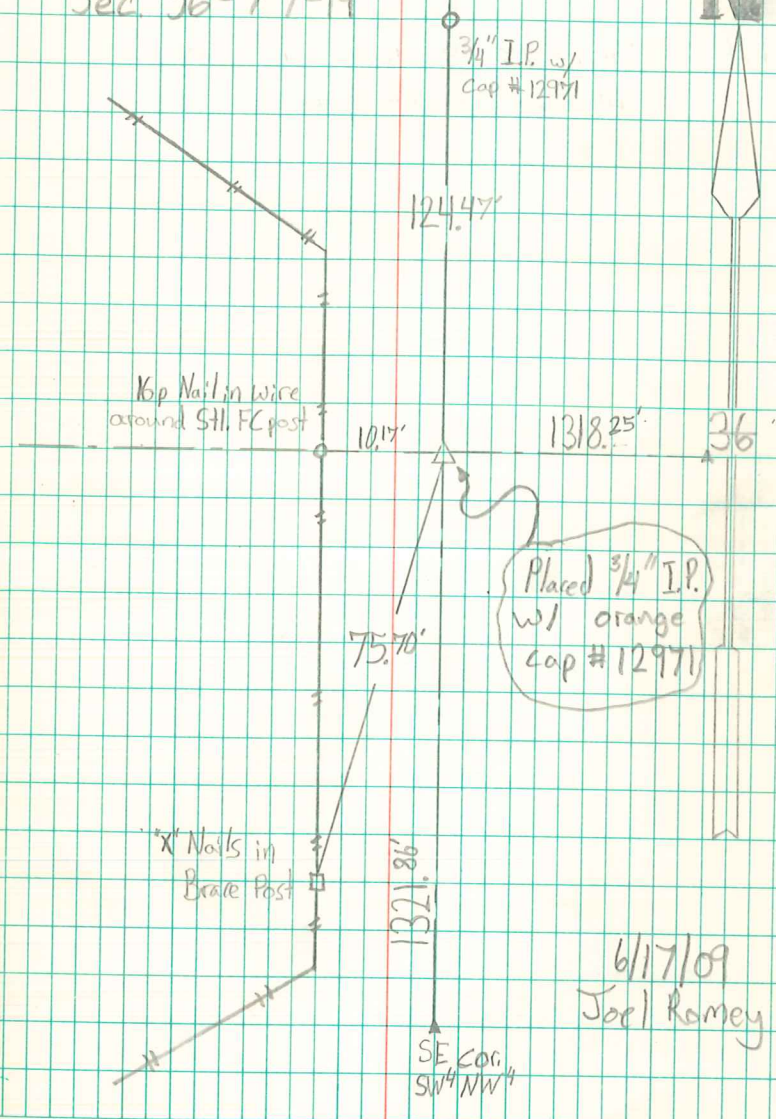 Sec. 36-
N
3/4" I.P. w/
Cap # 12971
124.47'
16p Nail in wire
around Stl. FC post
10.17'
1318.25'
36
Placed 3/4" I.P.
w/ orange
cap # 12971
75.70'
"X" Nails in
Brace Post
1321.86'
6/17/09
Joel Romey
SE Cor.
SW4 NW4